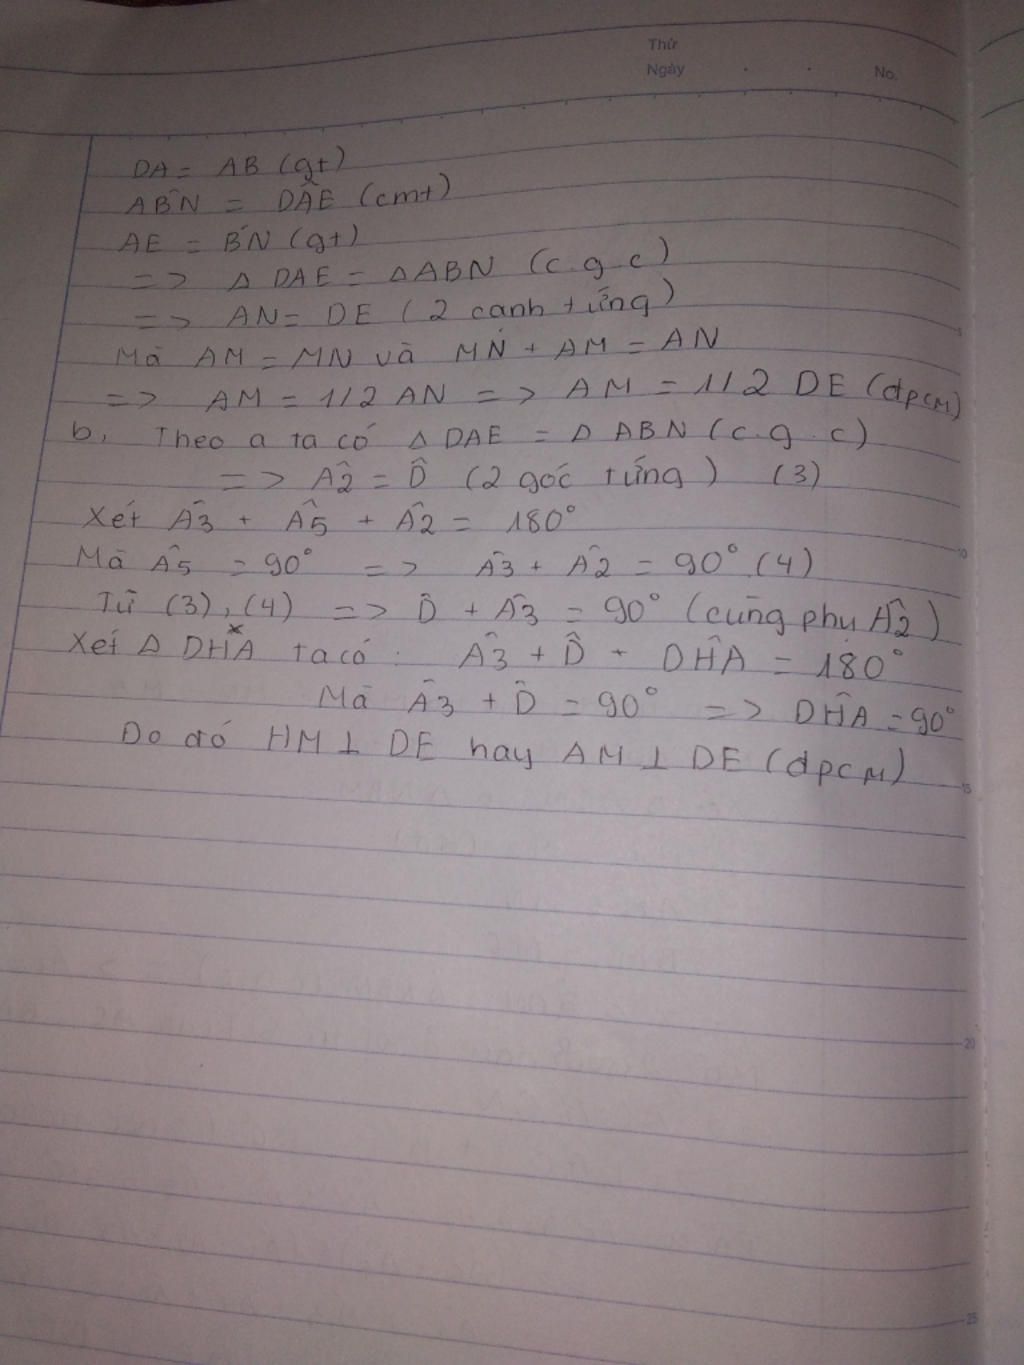 Thứ
Ngày . . No.
DA = AB (gt)
AB̂N = DÂE (cmt)
AE = BN (gt)
=> △ DAE = △ABN (c.g.c)
=> AN = DE (2 cạnh tứng)
Mà AM = MN và MN + AM = AN
=> AM = 1/2 AN => AM = 1/2 DE (đpcm)
b, Theo a ta có △ DAE = △ ABN (c.g.c)
=> Â2 = D̂ (2 góc tứng) (3)
Xét Â3 + Â5 + Â2 = 180°
Mà Â5 = 90° => Â3 + Â2 = 90° (4)
Từ (3), (4) => D̂ + Â3 = 90° (cùng phụ Â2)
Xét △ DHA ta có: Â3 + D̂ + DĤA = 180°
Mà Â3 + D̂ = 90° => DĤA = 90°
Do đó HM ⊥ DE hay AM ⊥ DE (đpcm)
5
10
15
20
25